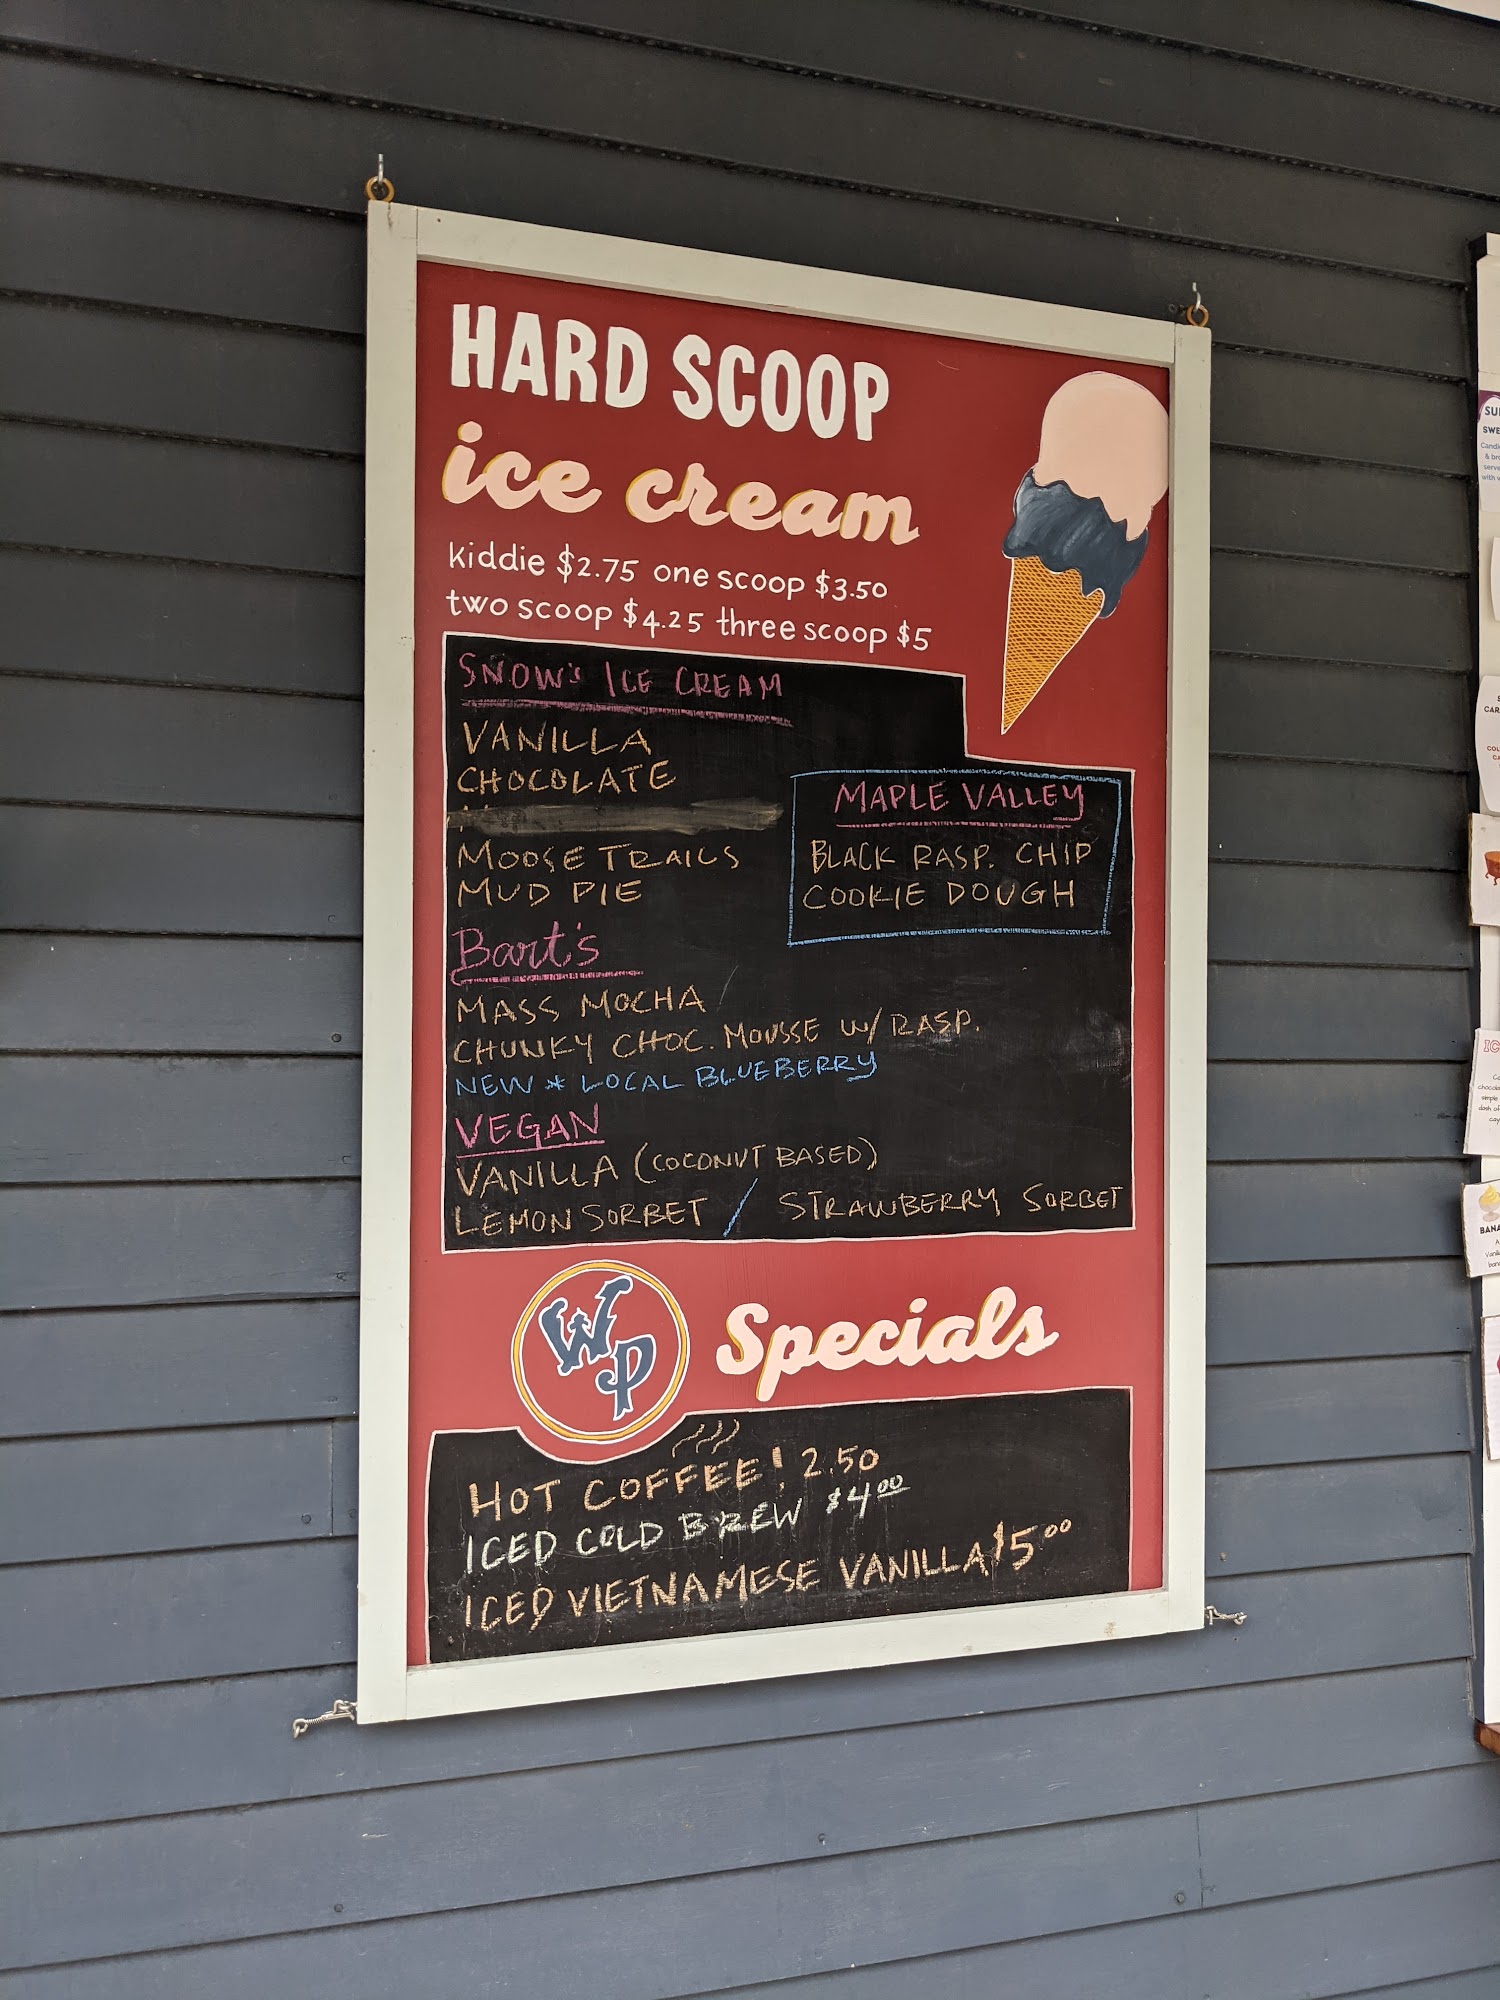 HARD SCOOP
ice cream
kiddie $2.75 one scoop $3.50
two scoop $4.25 three scoop $5
SNOW'S ICE CREAM
VANILLA
CHOCOLATE
MOOSE TRAILS
MUD PIE
MAPLE VALLEY
BLACK RASP. CHIP
COOKIE DOUGH
Bart's
MASS MOCHA
CHUNKY CHOC. MOUSSE W/ RASP.
NEW * LOCAL BLUEBERRY
VEGAN
VANILLA (COCONUT BASED)
LEMON SORBET / STRAWBERRY SORBET
WP Specials
HOT COFFEE! 2.50
ICED COLD BREW $4.00
ICED VIETNAMESE VANILLA $5.00